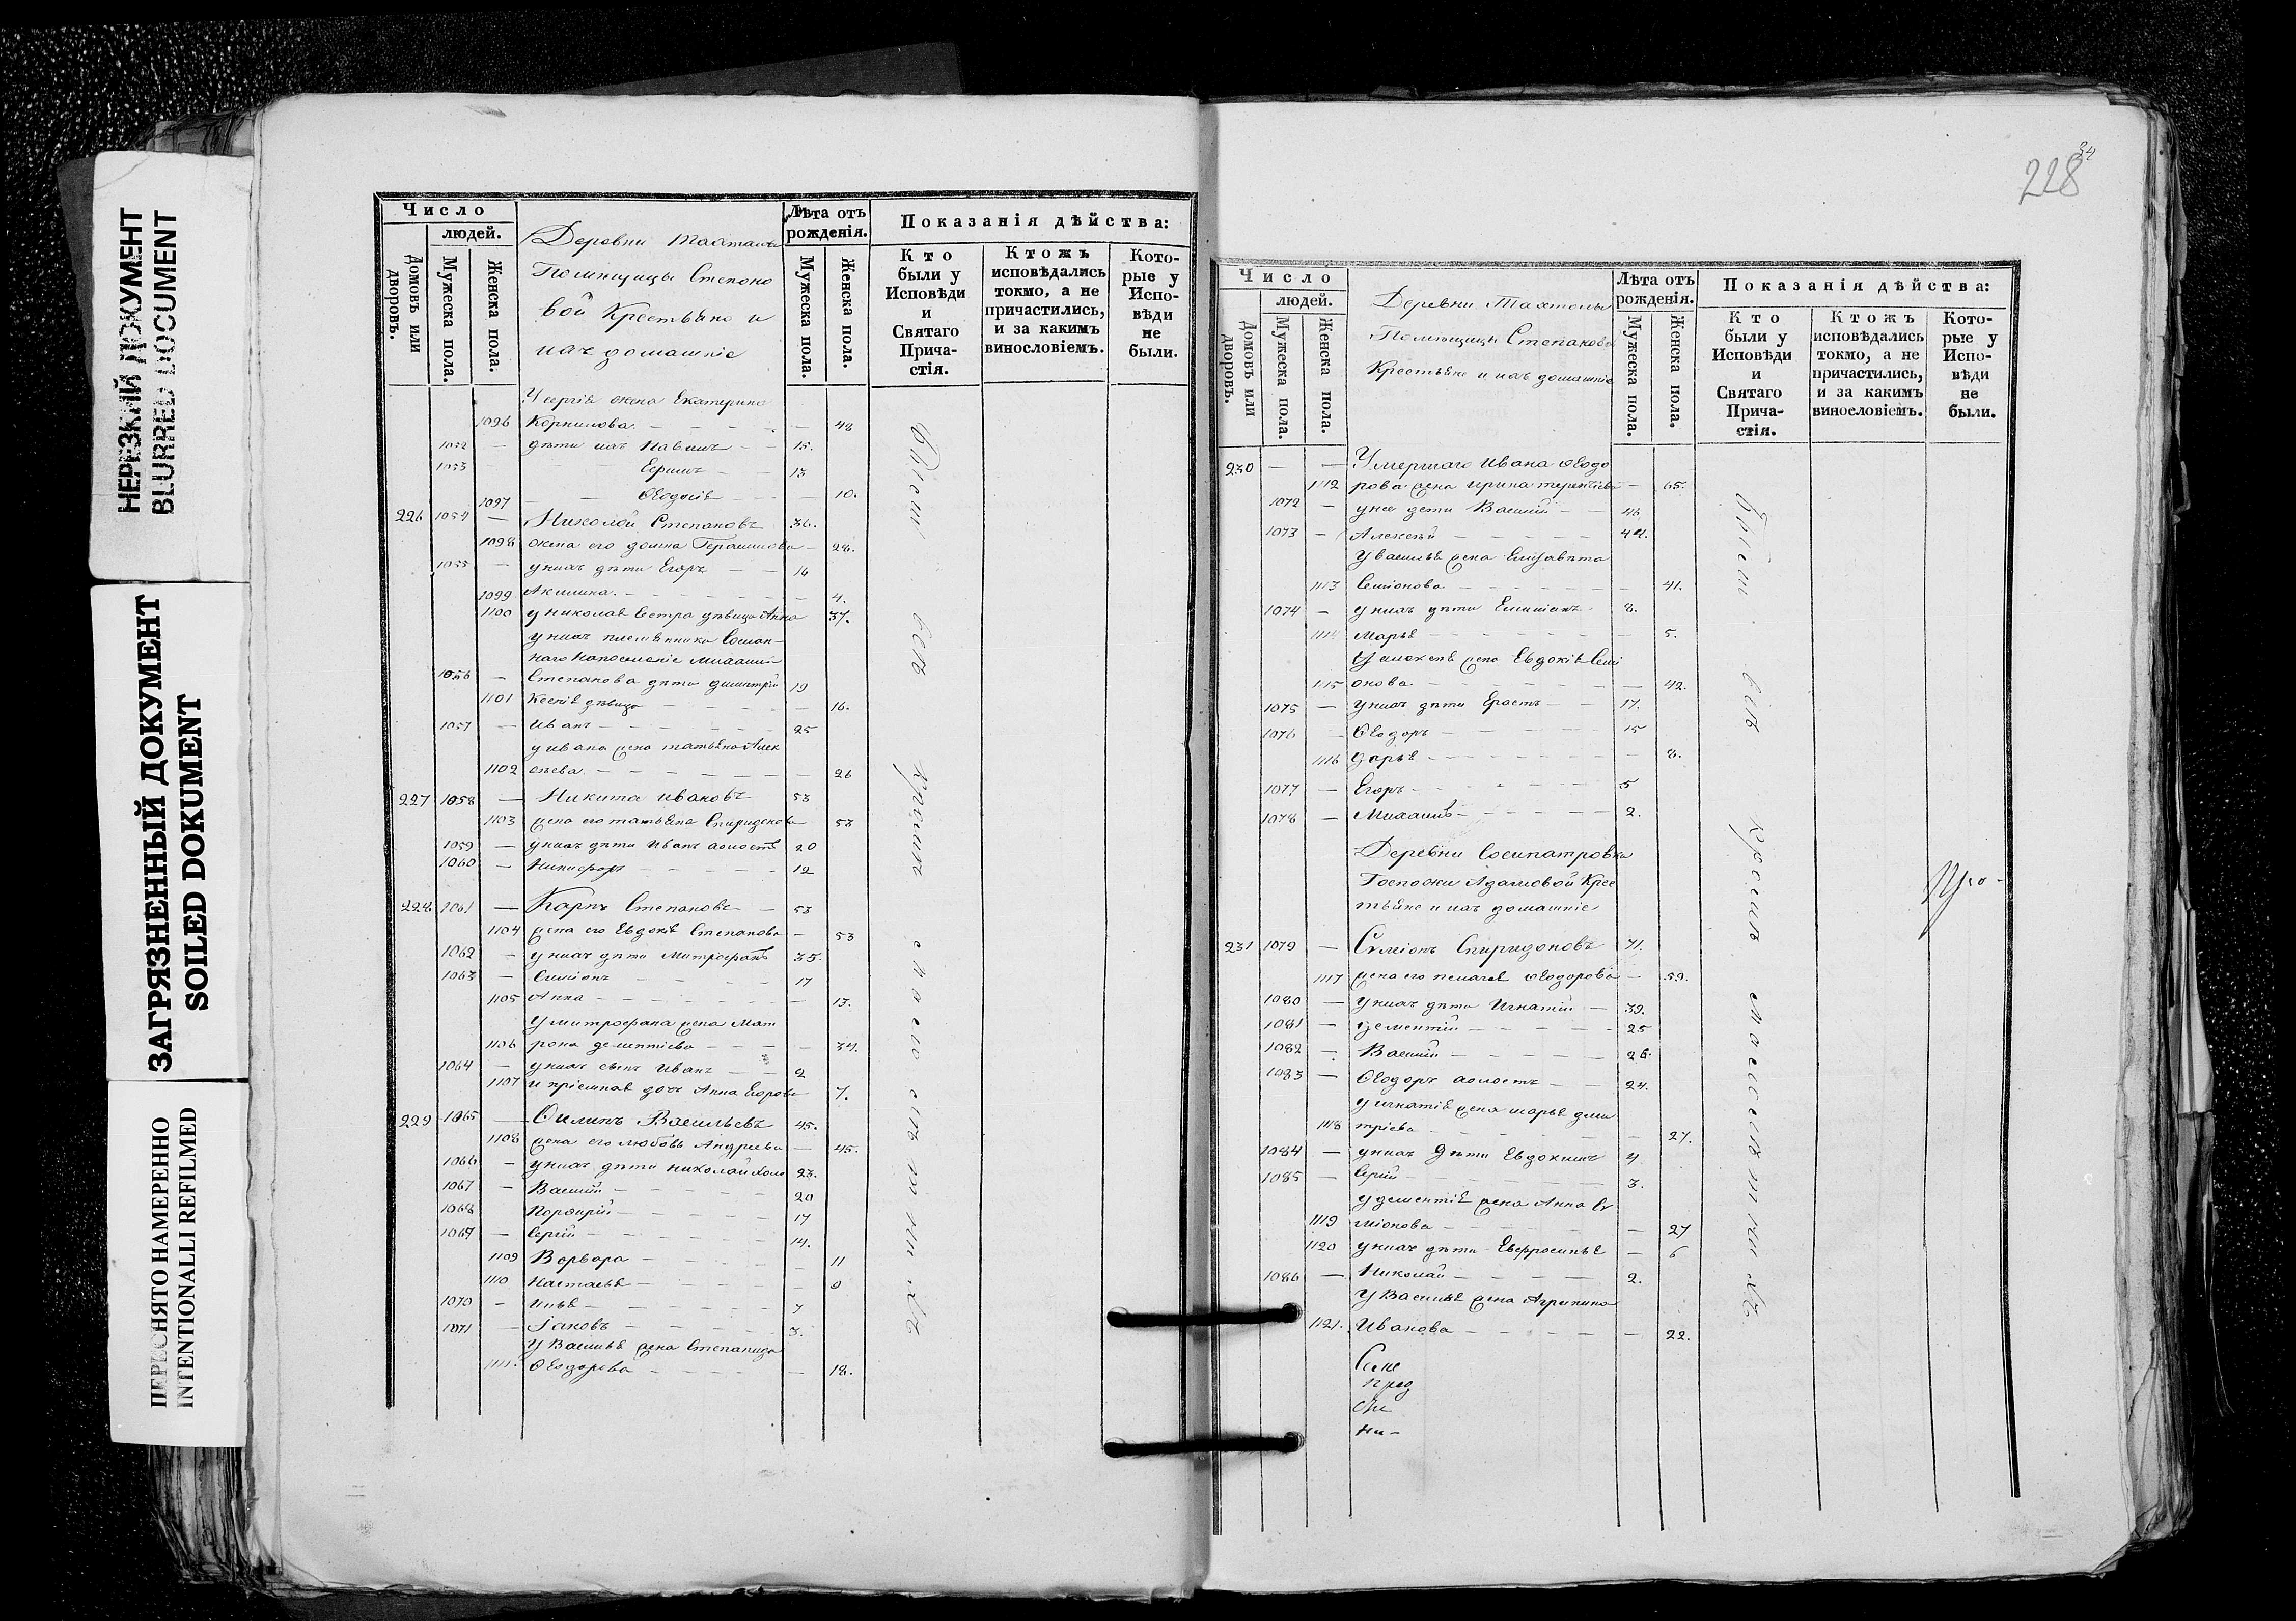 НЕРЕЗКИЙ ДОКУМЕНТ
BLURRED DOCUMENT
ЗАГРЯЗНЕННЫЙ ДОКУМЕНТ
SOILED DOKUMENT
ПЕРЕСНЯТО НАМЕРЕННО
INTENTIONALLI REFILMED
Число
людей.
Домовъ или дворовъ.
Мужеска пола.
Женска пола.
Деревни
Помѣщицы Степано
вой Крестьяне и
ихъ домашніе
Лѣта отъ рожденія.
Мужеска пола.
Женска пола.
Показанія дѣйства:
Кто были у Исповѣди и Святаго Причастія.
Ктожъ исповѣдались токмо, а не причастились, и за какимъ винословіемъ.
Которые у Исповѣди не были.
У Сергѣя жена Екатерина
1096 Корнилова 48
1052 — дѣти ихъ Павелъ 15.
1053 Ефимъ 13
1097 Ѳеодосія 10.
226 1054 — Николай Степановъ 36.
1098 жена его домна Герасимова 28.
1055 — у нихъ дѣти Егоръ 16
1099 Акилина 4.
1100 у николая Сестра дѣвица Анна 37.
у нихъ племянника Сослан-
наго на поселеніе Михаила
1056 — Степанова дѣти димитрій 19
1101 Ксенія дѣвица 16.
1057 — Иванъ 25
у ивана жена татьяна Алек
1102 сѣева 26
227 1058 — Никита ивановъ 53
1103 жена его татьяна Спиридонова 53
1059 — у нихъ дѣти Иванъ холостъ 20
1060 — Никифоръ 12
228 1061 — Карпъ Степановъ 53
1104 жена его Евдокія Степанова 53
1062 — у нихъ дѣти Митрофанъ 35.
1063 — Симіонъ 17
1105 Анна 13.
У митрофана жена Мат
1106 рона дементіева 34.
1064 — у нихъ сынъ Иванъ 2
1107 и пріемная дочь Анна Егорова 7.
229 1065 — Филипъ Васильевъ 45.
1108 жена его любовь Андреева 45.
1066 — у нихъ дѣти николай холо 23.
1067 — Василій 20
1068 Порфирій 17
1069 — Сергій 14.
1109 Варвара 11
1110 Настасья 9
1070 — Илья 7
1071 — Іаковъ 3.
У Василья жена Степанида
1111. Ѳеодорова 18.
Были всѣ
228
34
Число
людей.
Домовъ или дворовъ.
Мужеска пола.
Женска пола.
Деревни
Помѣщицы Степановой
Крестьяне и ихъ домашніе
Лѣта отъ рожденія.
Мужеска пола.
Женска пола.
Показанія дѣйства:
Кто были у Исповѣди и Святаго Причастія.
Ктожъ исповѣдались токмо, а не причастились, и за какимъ винословіемъ.
Которые у Исповѣди не были.
230 — — Умершаго Ивана Ѳеодо
1112 рова жена ирина терентіева 65.
1072 — у нее дети Василий 46
1073 — Алексѣй 42.
У василья жена Елизавѣта
1113 Семіонова 41.
1074 — у нихъ дѣти 8.
1114 Марья 5.
У алексѣя жена Евдокія Симі
1115 онова 42.
1075 — у нихъ дѣти Ерастъ 17.
1076 — Ѳеодоръ 15
1116 Дарья 8.
1077 — Егоръ 5
1078 — Михаилъ 2.
Деревни Сосипатровка
Госпожи Адамовой Крес
тьяне и ихъ домашніе
231 1079 — Симіонъ Спиридоновъ 71.
1117 жена его пелагея Ѳеодорова 59.
1080 — у нихъ дѣти Игнатій 39.
1081 — дементій 25
1082 — Василій 26.
1083 — Ѳеодоръ холостъ 24.
у игнатія жена марья дми
1118 тріева 27.
1084 — у нихъ дѣти Евдокимъ 4
1085 — Сергій 3.
у дементія жена Анна Си
1119 міонова 27
1120 у нихъ дѣти Евфросинья 6
1086 — Николай 2.
У Василья жена Агрипина
1121. Иванова 22.
Были всѣ